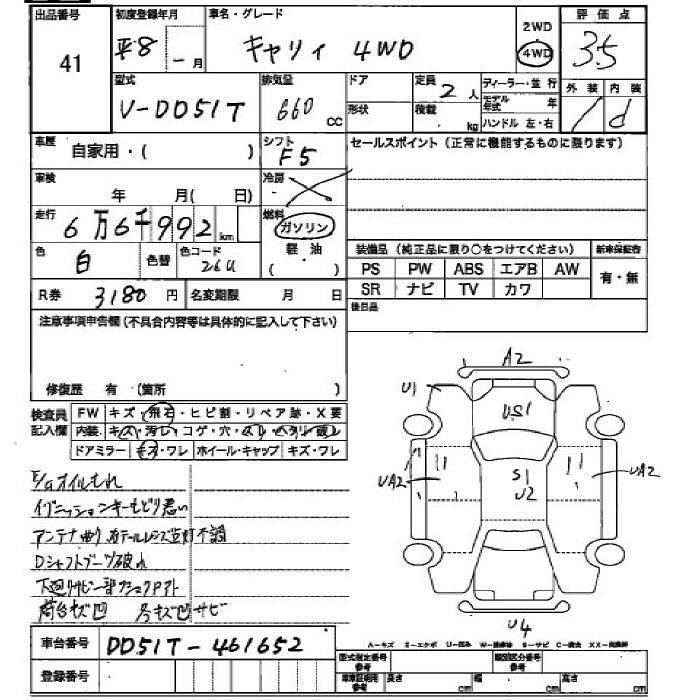 出品番号 初度登録年月 車名・グレード 2WD 評価点
41 平8 - 月 キャリイ 4WD 4WD 3.5
外装 内装
d
型式 排気量 ドア 定員 2 人 ディーラー・並行
V-DD51T 660 CC 形状 積載 kg モデル年式 年
ハンドル 左・右
車歴 自家用・( ) シフト F5 セールスポイント(正常に機能するものに限ります)
車検 年 月( 日) 冷房
走行 6万6千992 km 燃料 ガソリン
軽油
( )
色 白 色替 色コード 26U 装備品(純正品に限り○をつけてください) 新車保証書
PS PW ABS エアB AW 有・無
SR ナビ TV カワ
R券 3180 円 名変期限 月 日 後日品
注意事項申告欄(不具合内容等は具体的に記入して下さい)
修復歴 有 (箇所 )
検査員記入欄 FW キズ・飛石・ヒビ割・リペア跡・X要
内装 キズ・汚レ・コゲ・穴・スレ・ヘタリ・破レ
ドアミラー キズ・ワレ ホイール・キャップ キズ・ワレ
E/Gオイルもれ
イグニッションキーもどり悪い
アンテナ曲り 右テールレンズ 点灯不調
Dシャフトブーツ破れ
下廻りサビ 一部
荷台キズ凹 サビ
A2
U1
US1
UA2
S1
U2
UA2
U4
A-キズ E-エクボ U-凹み S-サビ
車台番号 DD51T-461652
登録番号
型式指定番号 参考 類別区分番号 参考
車庫証明用 参考 長さ cm 幅 cm 高さ cm